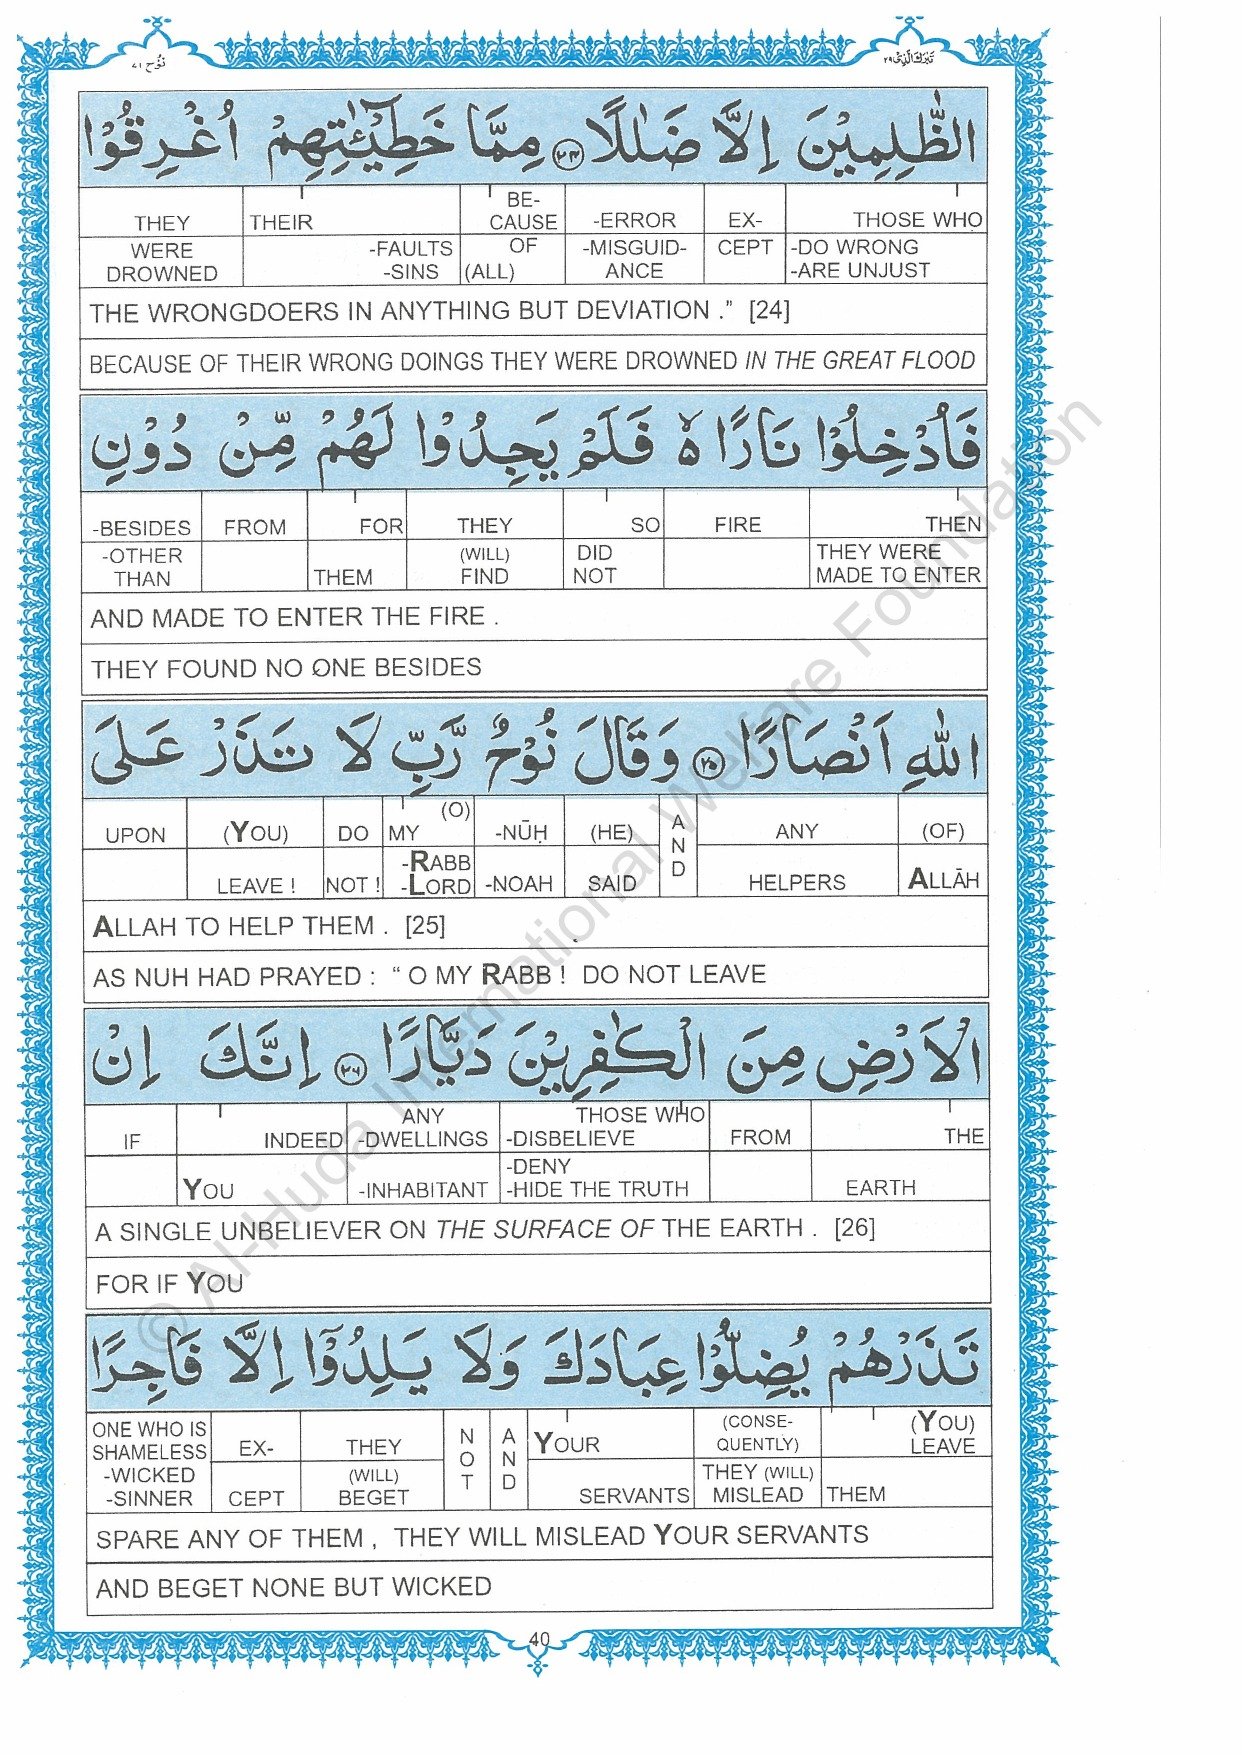 نُوح ٧١
تَبٰرَكَ الَّذِىْ ٢٩
الظّٰلِمِيْنَ اِلَّا ضَلٰلًا ﴿٢٤﴾ مِمَّا خَطِيْٓـٰٔتِهِمْ اُغْرِقُوْا
THEY THEIR BE-CAUSE -ERROR EX- THOSE WHO
WERE DROWNED -FAULTS -SINS OF (ALL) -MISGUID-ANCE CEPT -DO WRONG -ARE UNJUST
THE WRONGDOERS IN ANYTHING BUT DEVIATION .” [24]
BECAUSE OF THEIR WRONG DOINGS THEY WERE DROWNED IN THE GREAT FLOOD
فَاُدْخِلُوْا نَارًا ۙ فَلَمْ يَجِدُوْا لَهُمْ مِّنْ دُوْنِ
-BESIDES FROM FOR THEY SO FIRE THEN
-OTHER THAN THEM (WILL) FIND DID NOT THEY WERE MADE TO ENTER
AND MADE TO ENTER THE FIRE .
THEY FOUND NO ONE BESIDES
اللّٰهِ اَنْصَارًا ﴿٢٥﴾ وَقَالَ نُوْحٌ رَّبِّ لَا تَذَرْ عَلَى
UPON (YOU) DO MY (O) -NŪḤ (HE) AND ANY (OF)
LEAVE ! NOT ! -RABB -LORD -NOAH SAID HELPERS ALLĀH
ALLAH TO HELP THEM . [25]
AS NUH HAD PRAYED : “ O MY RABB ! DO NOT LEAVE
الْاَرْضِ مِنَ الْكٰفِرِيْنَ دَيَّارًا ﴿٢٦﴾ اِنَّكَ اِنْ
IF INDEED ANY -DWELLINGS THOSE WHO -DISBELIEVE FROM THE
YOU -INHABITANT -DENY -HIDE THE TRUTH EARTH
A SINGLE UNBELIEVER ON THE SURFACE OF THE EARTH . [26]
FOR IF YOU
تَذَرْهُمْ يُضِلُّوْا عِبَادَكَ وَلَا يَلِدُوْٓا اِلَّا فَاجِرًا
ONE WHO IS SHAMELESS EX- THEY NOT AND YOUR (CONSE-QUENTLY) (YOU) LEAVE
-WICKED -SINNER CEPT (WILL) BEGET SERVANTS THEY (WILL) MISLEAD THEM
SPARE ANY OF THEM , THEY WILL MISLEAD YOUR SERVANTS
AND BEGET NONE BUT WICKED
40
© Al-Huda International Welfare Foundation